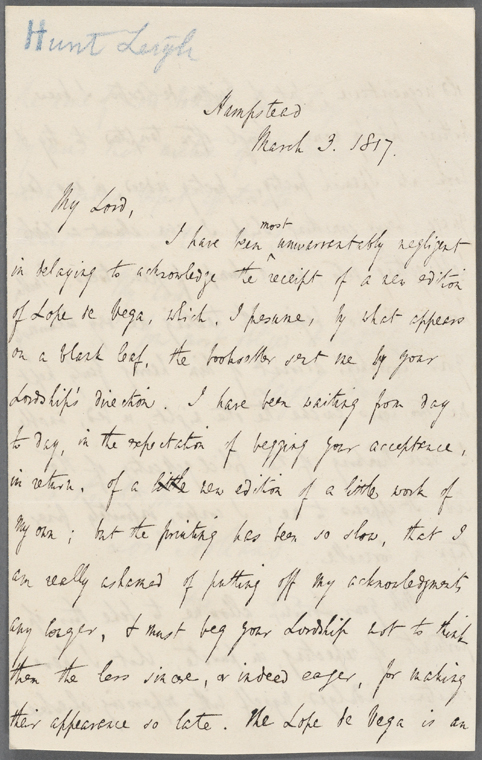 Hunt Leigh
Hampstead
March 3. 1817.
My Lord,
most
I have been ^ unwarrantably negligent
in delaying to acknowledge the receipt of a new edition
of Lope de Vega, which, I presume, by what appears
on a blank leaf, the bookseller sent me by your
Lordship's direction. I have been waiting from day
to day, in the expectation of begging your acceptance,
in return, of a little new edition of a little work of
my own; but the printing has been so slow, that I
am really ashamed of putting off my acknowledgments
any longer, & must beg your Lordship not to think
them the less sincere, or indeed eager, for making
their appearance so late. The Lope de Vega is an